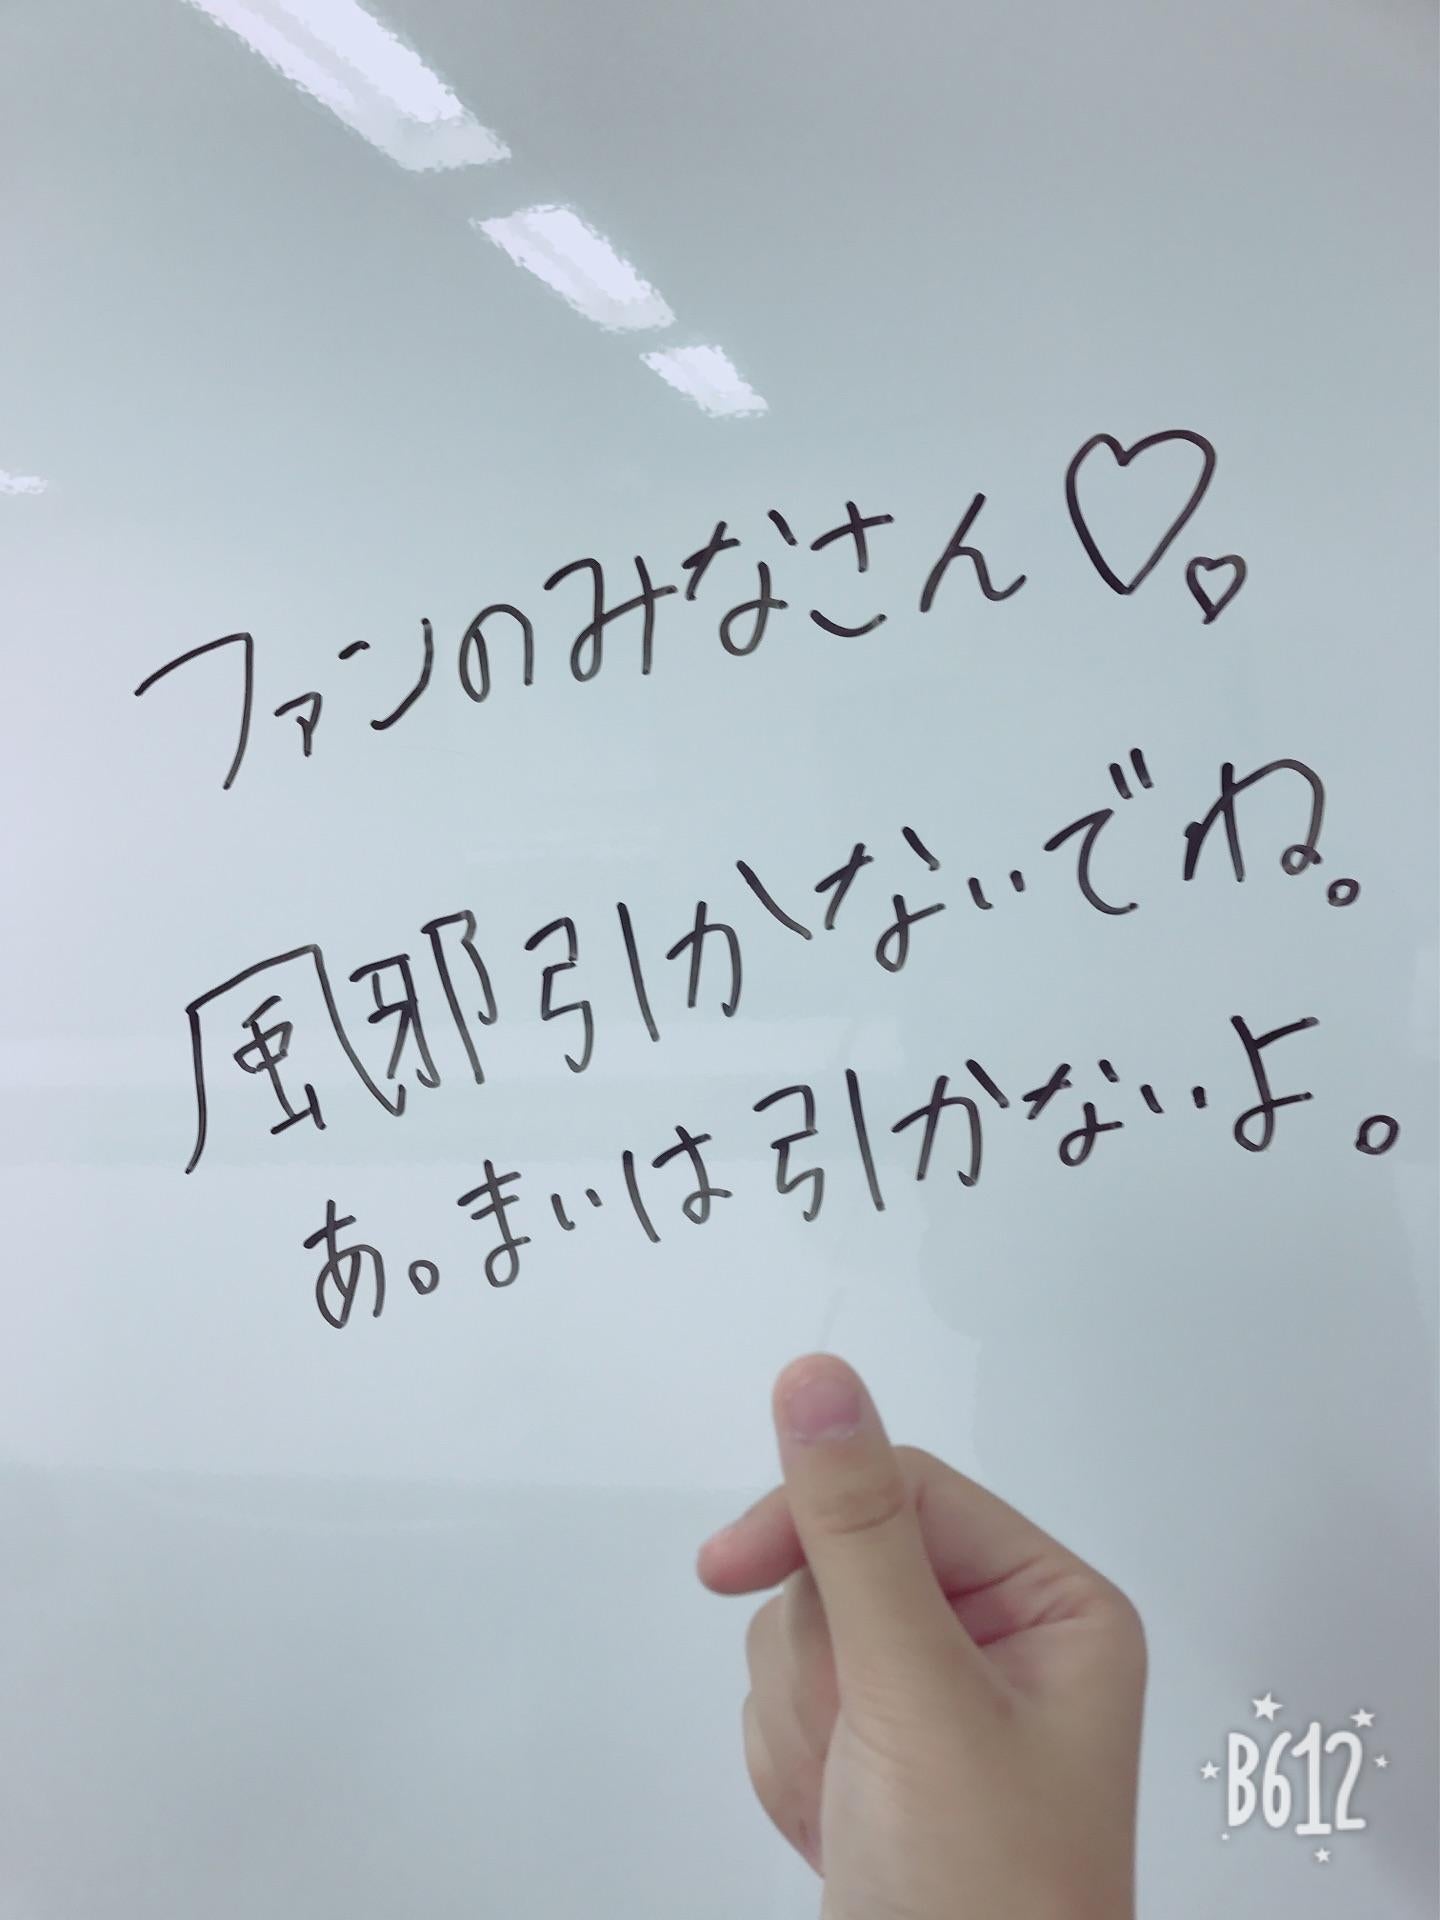 ファンのみなさん♡♡
風邪引かないでね。
あ。まいは引かないよ。
B612